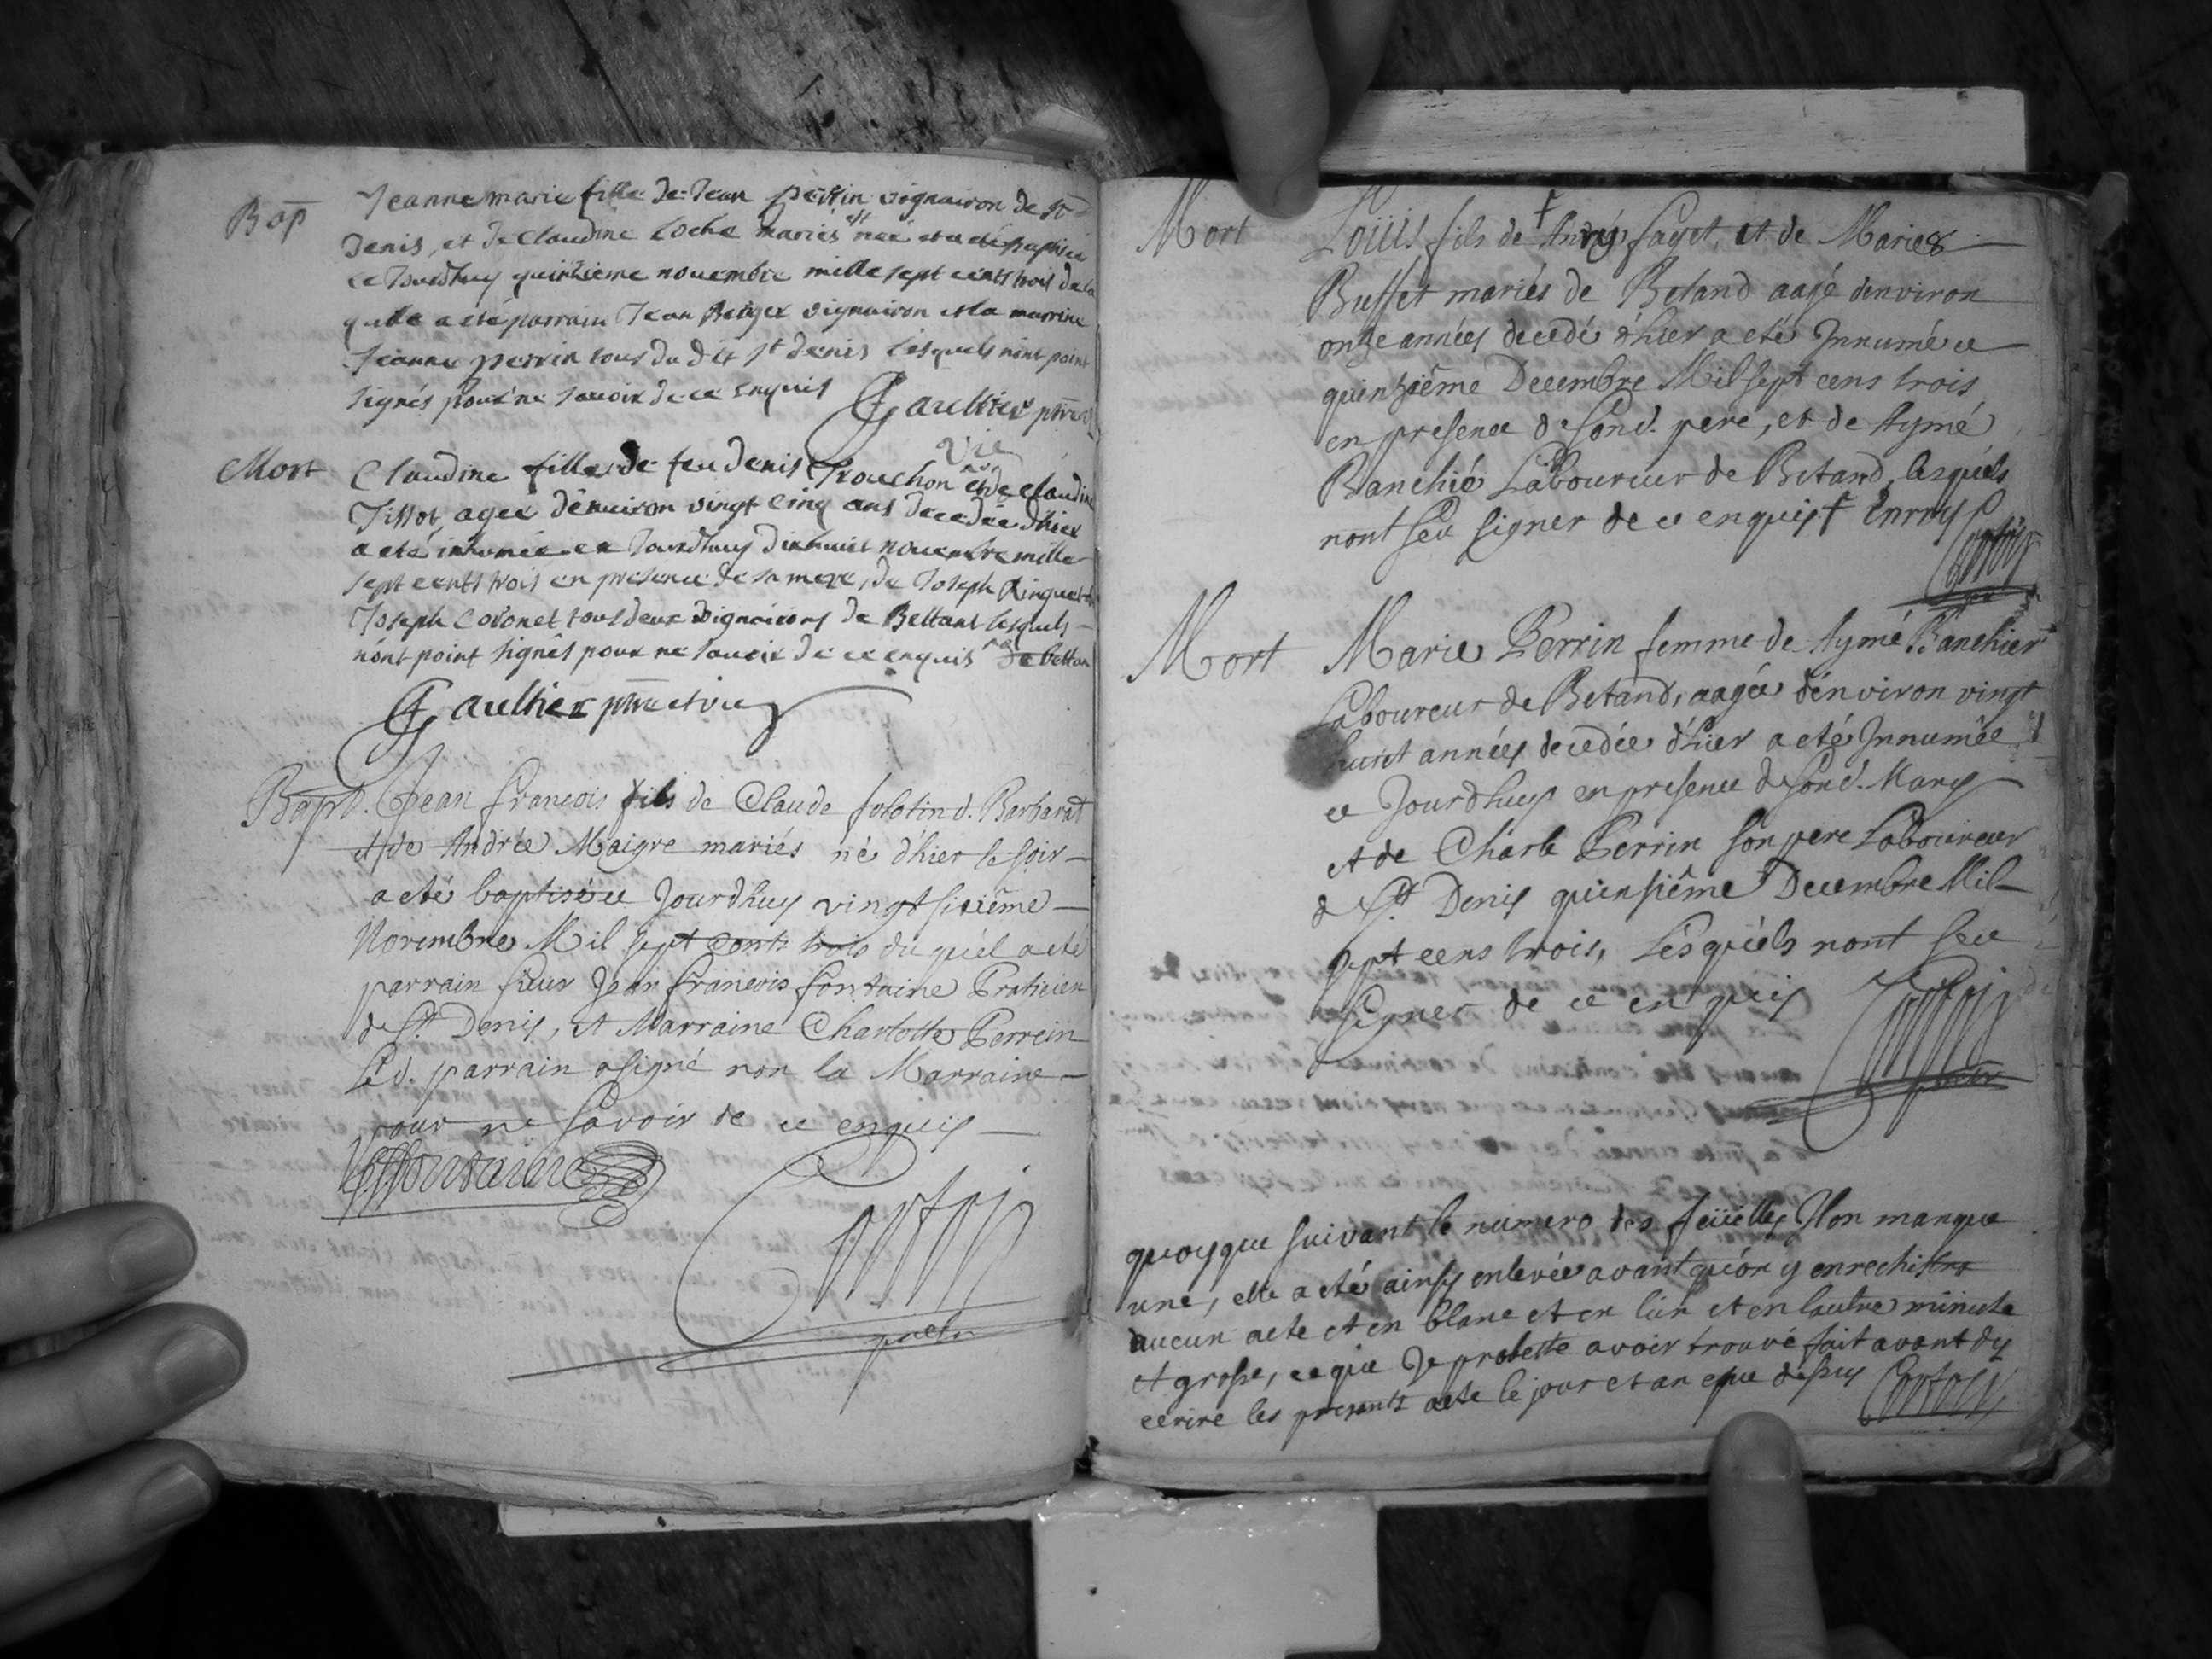 Bap Jeanne marie fille de Jean perrin vignairon de st
denis, et de claudine coche mariés est neé et a eté baptisée
ce Jourdhuy quinzieme novembre mille sept cents trois de la
quelle a eté parrain Jean Berger vignairon et la marrine
Jeanne perrin tous du dit st denis lesquels n'ont point
signés pour ne savoir de ce enquis Gaultier ptre
vic
Mort Claudine fille de feu denis Prouchon et de claudine
Tissot, agee d'environ vingt cinq ans decedée d'hier
a eté inhumée ce Jourdhuy dixhuit novembre mille
sept cents trois en presence de sa mere, de Joseph Ringuet
Joseph Coronet tous deux vignairons de Bettant lesquels
n'ont point signés pour ne savoir de ce enquis de bettan
Gaultier ptre et vic
Bapt. Jean francois fils de Claude folotin d. Barbarat
et de Andrée Maigre mariés né d'hier le soir
a eté baptisé ce Jourdhuy vingt sixiême
Novembre Mil sept cents trois du quel a eté
parrain sieur Jean francois fontaine Praticien
de St. Denis, et Marraine Charlotte Perrein
Led. parrain a signé non la Marraine
pour ne savoir de ce enquis
JFfontaine
Cortois
Mort Loüis fils de † André fayet, et de Marie
Buffet mariés de Betand aagé denviron
onze années decedé d'hier a eté Innumé ce
quinziême Decembre Mil sept cens trois
en presence de sond. pere, et de Aymé
Banchié Laboureur de Betand, lesquels
nont seu signer de ce enquis † Enrry
Cortois
Mort Marie Perrin femme de Aymé Banchier
Laboureur de Betand, aagée d'environ vingt
huict années decedée d'hier a eté Innumée
ce Jourdhuy en presence de sond. Mary
et de Charle Perrin son pere Laboureur
de St. Denis quinsiême Decembre Mil
sept cens trois, Lesquels nont seu
signer de ce enquis
Cortois
quoyque suivant le numero des feüilles Ilon manque
une, elle a eté ainsy enlevée avant qu'on y enrechistra
aucun acte et en blanc et en l'un et en lautre minute
et grosse, ce que Je proteste avoir trouvé fait avant dy
ecrire les presents acte le jour et an que dessus Cortois